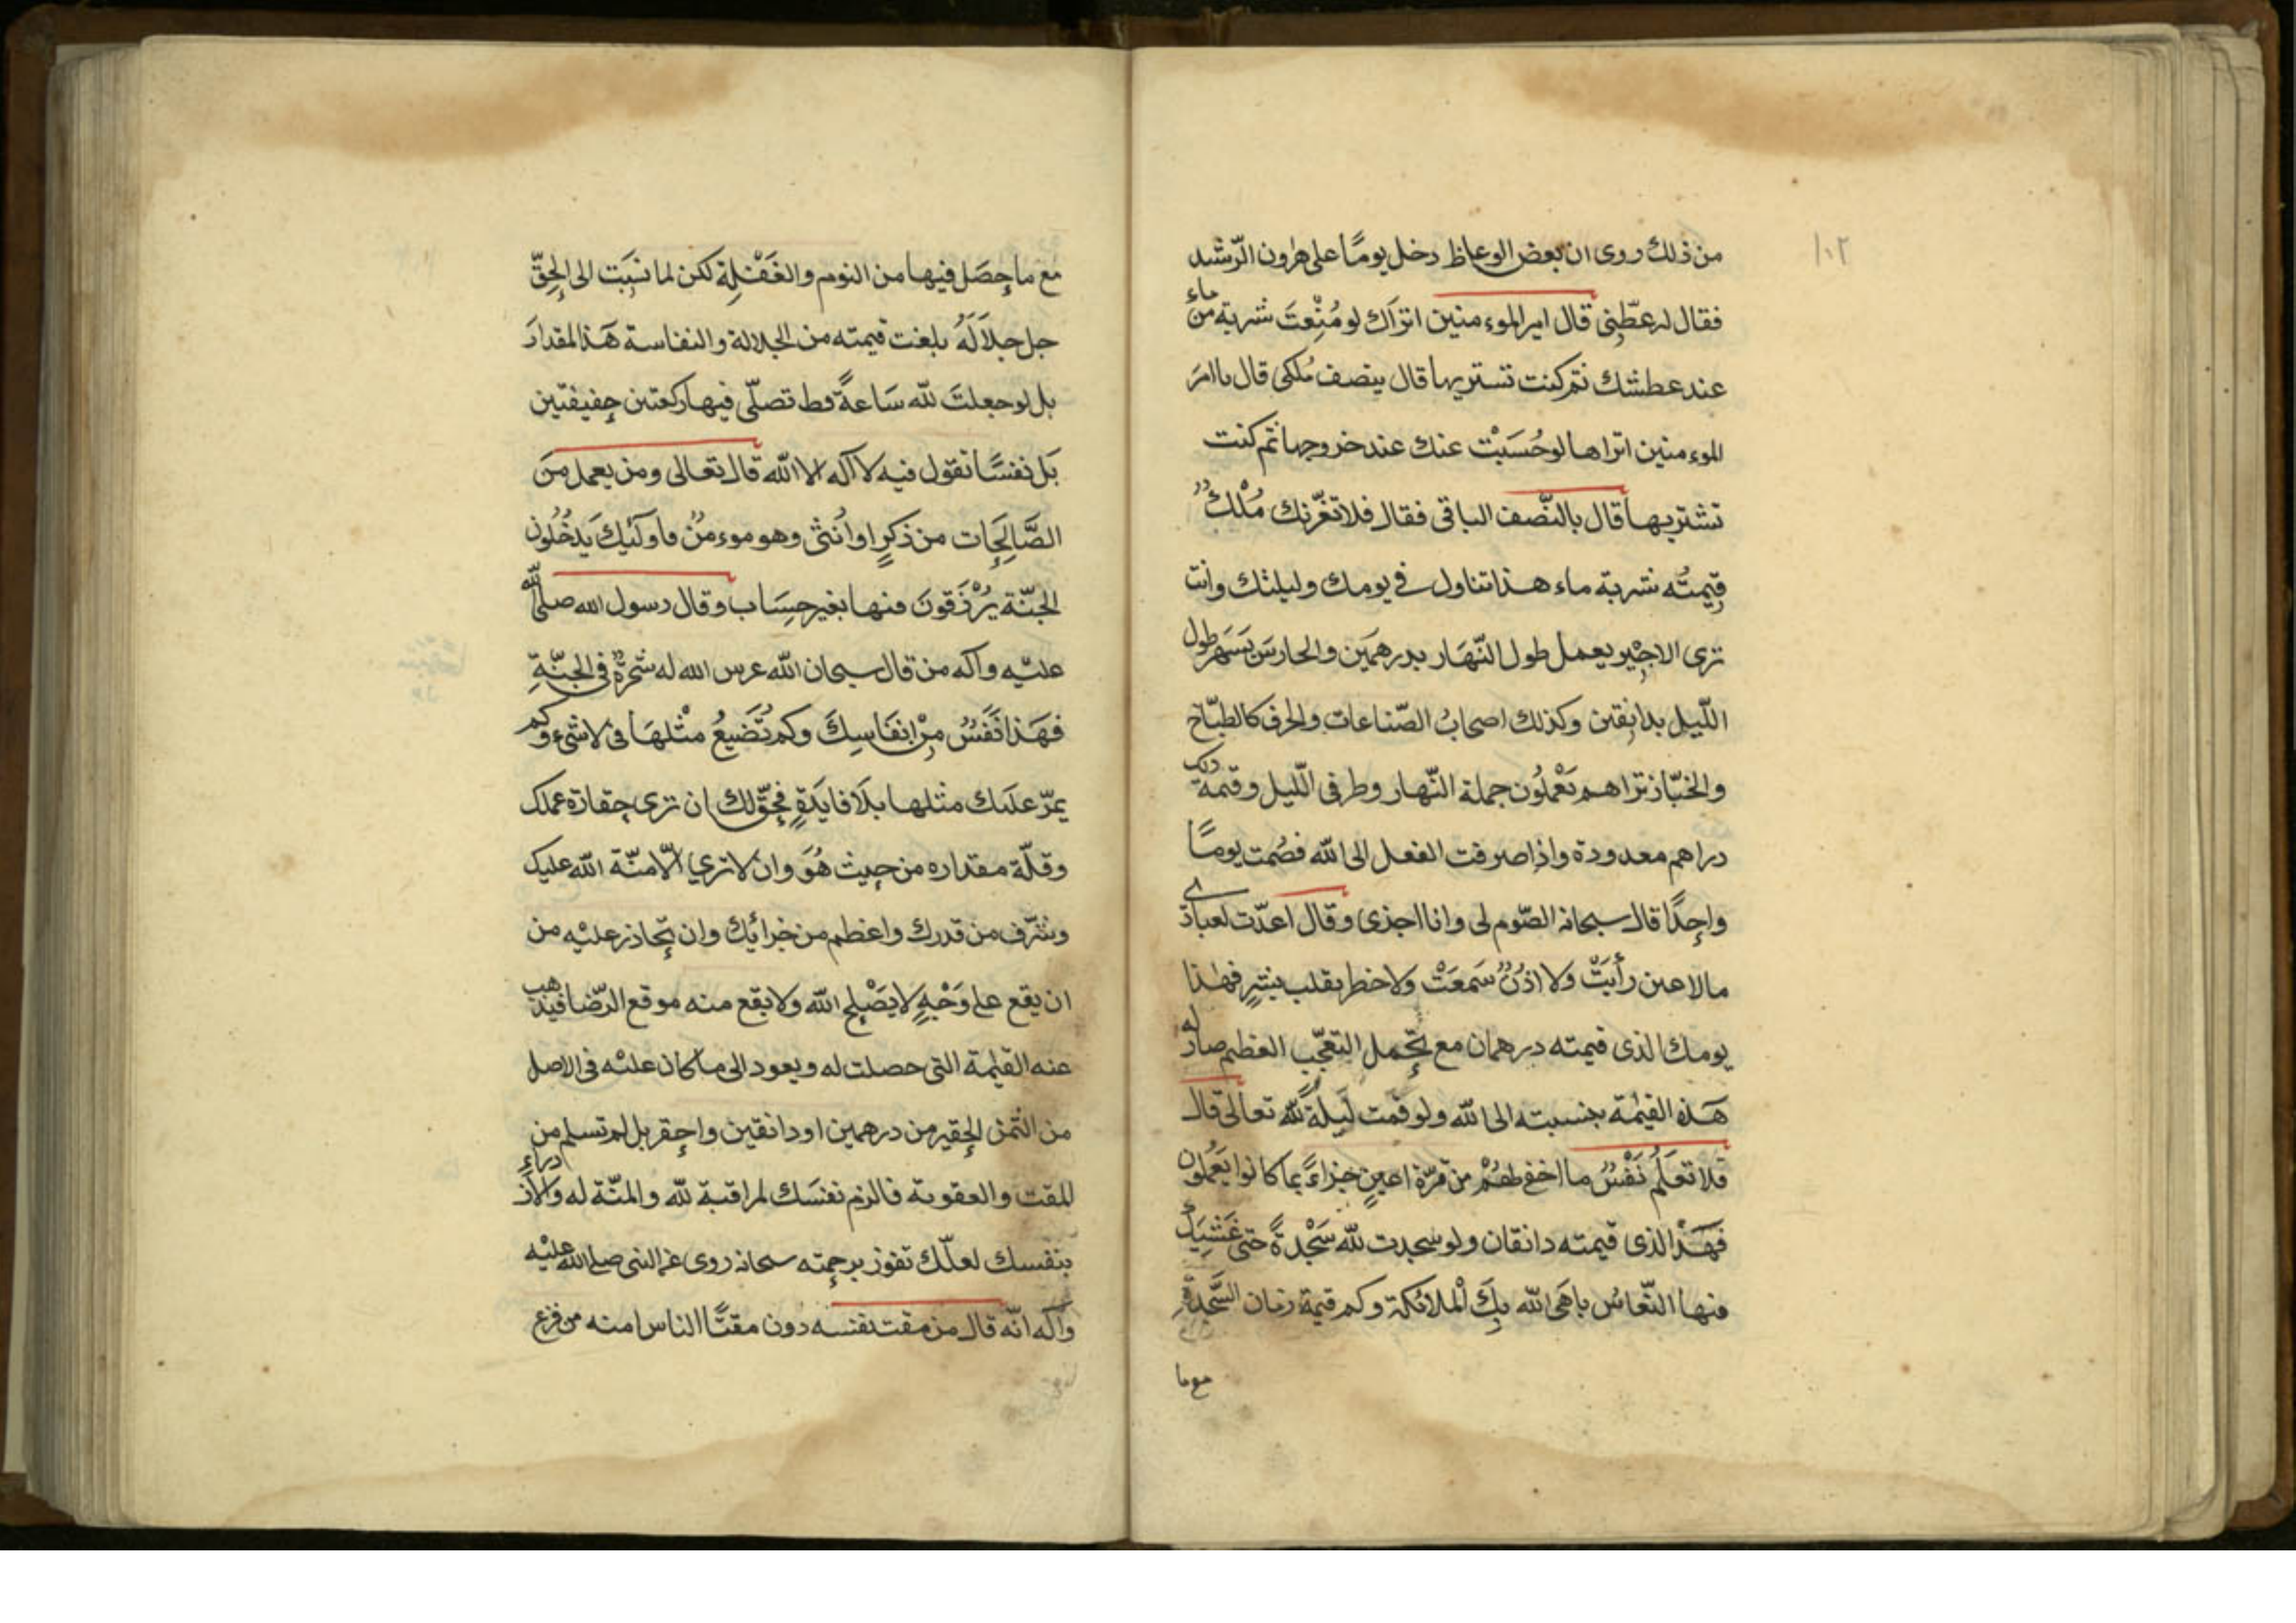 ١٠٢
من ذلك روى ان بعض الوعاظ دخل يومًا على هرون الرّشيد
فقال له عظني قال امير الموءمنين اتراك لو مُنِعْتَ شربة من ماء
عند عطشك ثم كنت تشتريها قال بنصف مُلكي قال ياامَر
الموءمنين اتراها لو حُبسَتْ عنك عند خروجها ثم كنت
تشتريها قال بالنّصف الباقى فقال فلا تغرّنك مُلْكٌ
قِيمتُه شربة ماء هذا تناول في يومك وليلتك وانت
ترى الاجيْر يعمل طول النّهَار بدرهمَين والحارسَ يَسَهر طول
اللّيل بدانقين وكذلك اصحابُ الصّناعات والحرف كالطبّاخ
والخبّاز تراهم يَعْملُون جملة النّهار وطرفى اللّيل وقيمة ذلك
دراهم معدودة واذا صرفت الفعل الى الله فصُمت يومًا
واحِدًا قال سبحانه الصّوم لى وانا اجذى وقال اعدّت لعبادي
مالا عين رأَيَتْ ولا اذُنٌ سَمعَتْ ولا خطر بقلب بشرٍ فهذا
يومك الذى قيمته درهمان مع تحّمل التعّب العظيم صار له
هَذه القيمة بجنسبته الى الله ولو قمت لَيلةً لله تعالى قال
فلا تعَلمُ نَفْسٌ ما اخفى لهُمْ من قرّة اعينٍ جزاءً بما كانوا يَعملُون
فهَذْا الذى قيمته دانقان ولو سجدت لله سَجْدةً حتى غَشيَك
فيها النّعاسُ باهَى الله بِكَ الْملائكة وكم قيمة زمان السَّجدة
مع ما
مع ما حِصَل فيها من النوم والغَفْلِة لكن لما نسِبَت الى الحِقّ
جل جَلاَلَهُ بلغت قيمته من الجلالة والنفاسة هَذا المقدارَ
بل لو جعلتَ لله سَاعةً فط تصلّى فيها ركعتين خفيفتين
بَل نفسًا تقول فيه لا آله الا الله قال تعالى ومن يعمل منَ
الصَّالِحَات من ذكرٍ او اُنثى وهو موءمنٌ فاوَلَئِكَ يَدخُلُون
الجنّة يُرْزَقونَ فيها بغير حِسَاب وقال رسول الله صلى الله
عليْه وآله من قال سبحان الله غرس الله له شجرةٌ فى الجنّةِ
فهَذا نَفَسٌ مِنْ انفَاسِكَ وكم تُضَيعُ مثْلهَا فى لا شىء وكم
يمرّ علَيك مثلها بلاَ فايَدَةٍ فحِقّ لك ان ترى حِقارة عملك
وقلّة مقداره من حيِث هُوَ وان لا تري الّا منّة الله عليك
وشرّف من قدرك واعظم من جزائِك وان تحِاذر عليْه من
ان يقع على وَجْهٍ لا يَصْلِح الله ولا يقع منه موقع الرّضا فيذهب
عنه القيمة التى حصلت له ويعود الى ما كان عليْه فى الاصل
من الثّمن الحِقير من درهمين او دانقين واحِقر بل لم تسلم من
المقت والعقوبة فالزم نفسَك لمراقبة لله والمنّة له والازدراء
بنفسك لعلّك تفوز برحِمته سبحانه روى عن النبى صلى الله عليْه
وآله انّه قال من مقت نفسه دون مقتًا الناس امنه من فزع